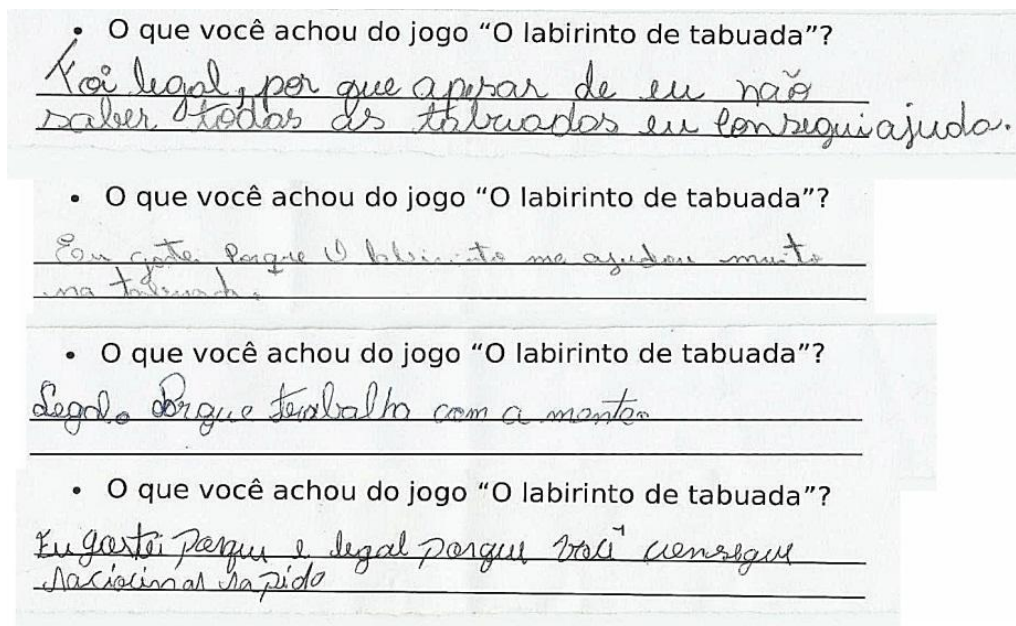 • O que você achou do jogo “O labirinto de tabuada”?
Foi legal, por que apesar de eu não
saber todas as tabuadas eu consegui ajuda.
• O que você achou do jogo “O labirinto de tabuada”?
Eu goste Porque O labirinto me ajudou muito
na tabuada.
• O que você achou do jogo “O labirinto de tabuada”?
Legal. Porque trabalha com a mente.
• O que você achou do jogo “O labirinto de tabuada”?
Eu gostei porque e legal porque você consegue
raciocinar rapido